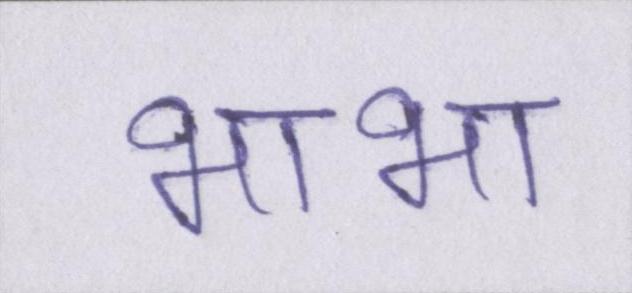 भाभा